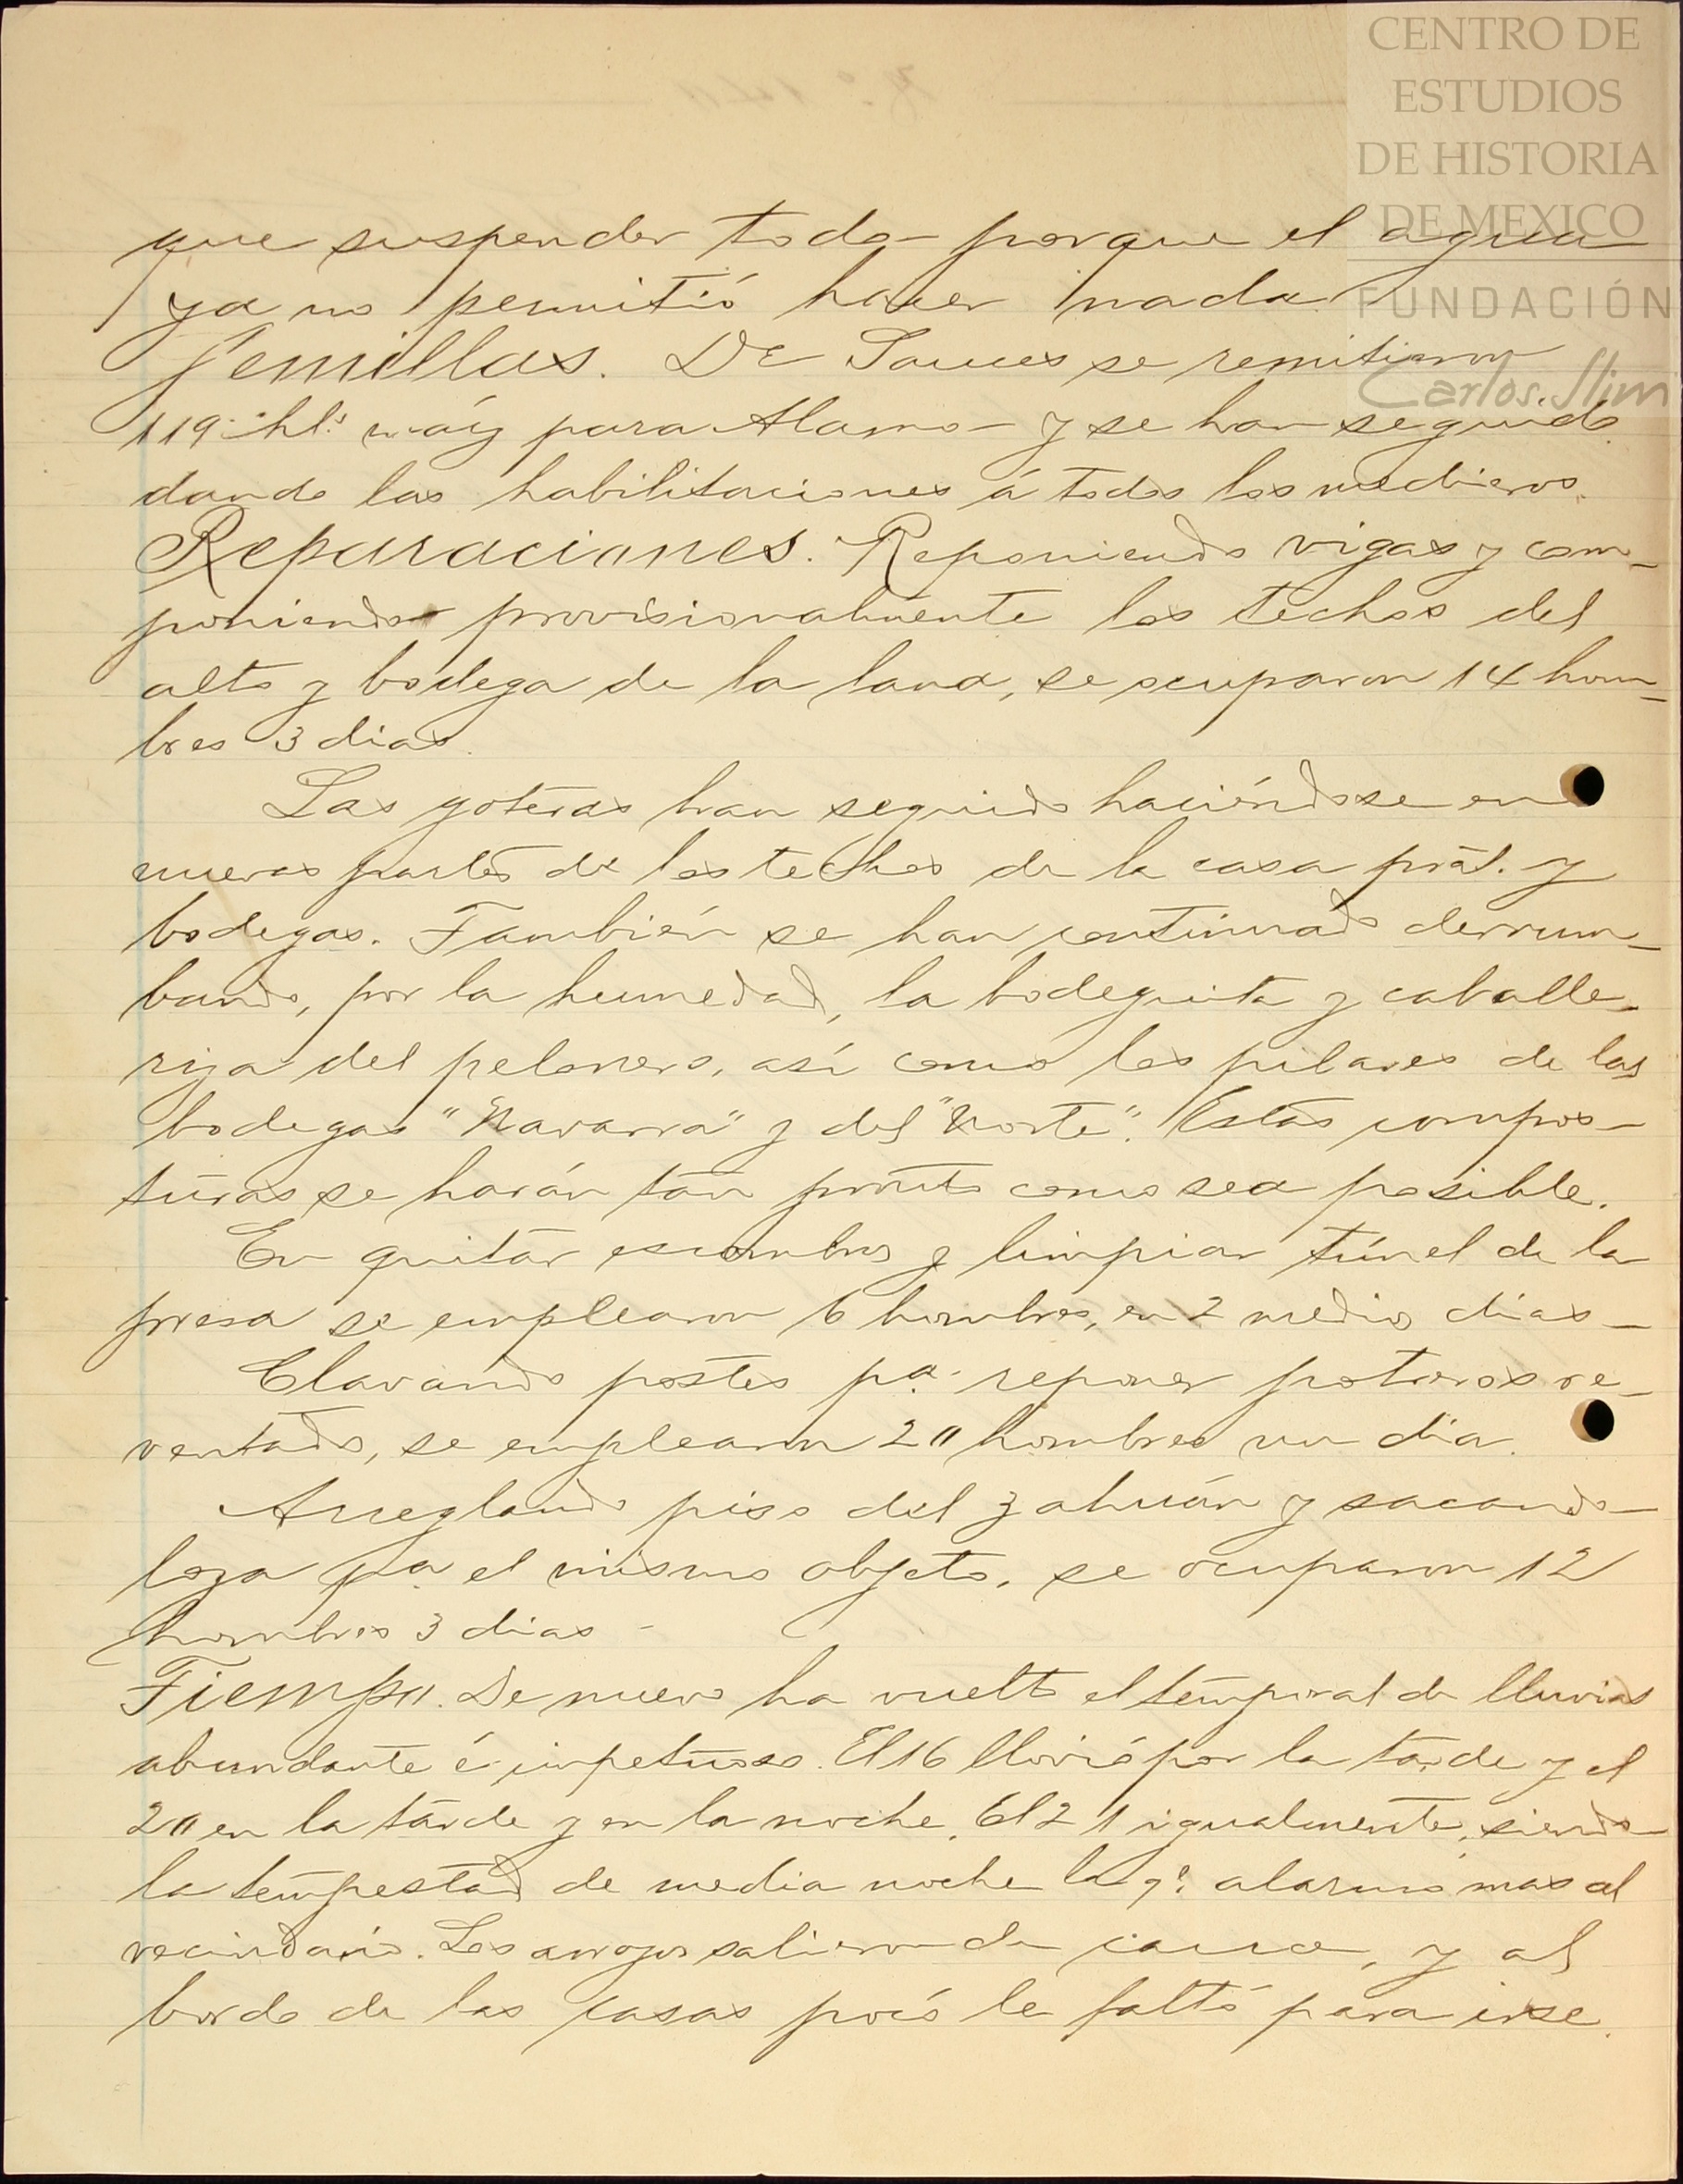 CENTRO DE
ESTUDIOS
DE HISTORIA
DE MEXICO
FUNDACIÓN
Carlos Slim
que suspender todo porque el agua
ya no permitió hacer nada.
Semillas. De Sauces se remitieron
119 hl.s maíz para Alamo y se han seguido
dando las habilitaciones á todos los medieros.
Reparaciones. Reponiendo vigas y com-
poniendo provisionalmente los techos del
alto y bodega de la lana, se ocuparon 14 hom-
bres 3 dias.
Las goteras han seguido haciéndose en
nuevas partes de los techos de la casa pral. y
bodegas. También se han continuado derrum-
bando, por la humedad, la bodeguita y caballe-
riza del pelonero, así como los pilares de las
bodegas "Navarra" y del "Norte". Estas compos-
turas se harán tan pronto como sea posible.
En quitar escombros y limpiar túnel de la
presa se emplearon 6 hombres, en 2 medios dias-
Clavando postes pa. reponer potreros re-
ventados, se emplearon 20 hombres un dia.
Arreglando piso del zahuán y sacando
loza pa el mismo objeto, se ocuparon 12
hombres 3 dias -
Tiempo. De nuevo ha vuelto el temporal de lluvias
abundante é impetuoso. El 16 llovió por la tarde y el
20 en la tarde y en la noche. El 21 igualmente, siendo
la tempestad de media noche la q.e alarmó mas al
vecindario. Los arroyos salieron de cauce, y al
bordo de las casas poco le faltó para irse.